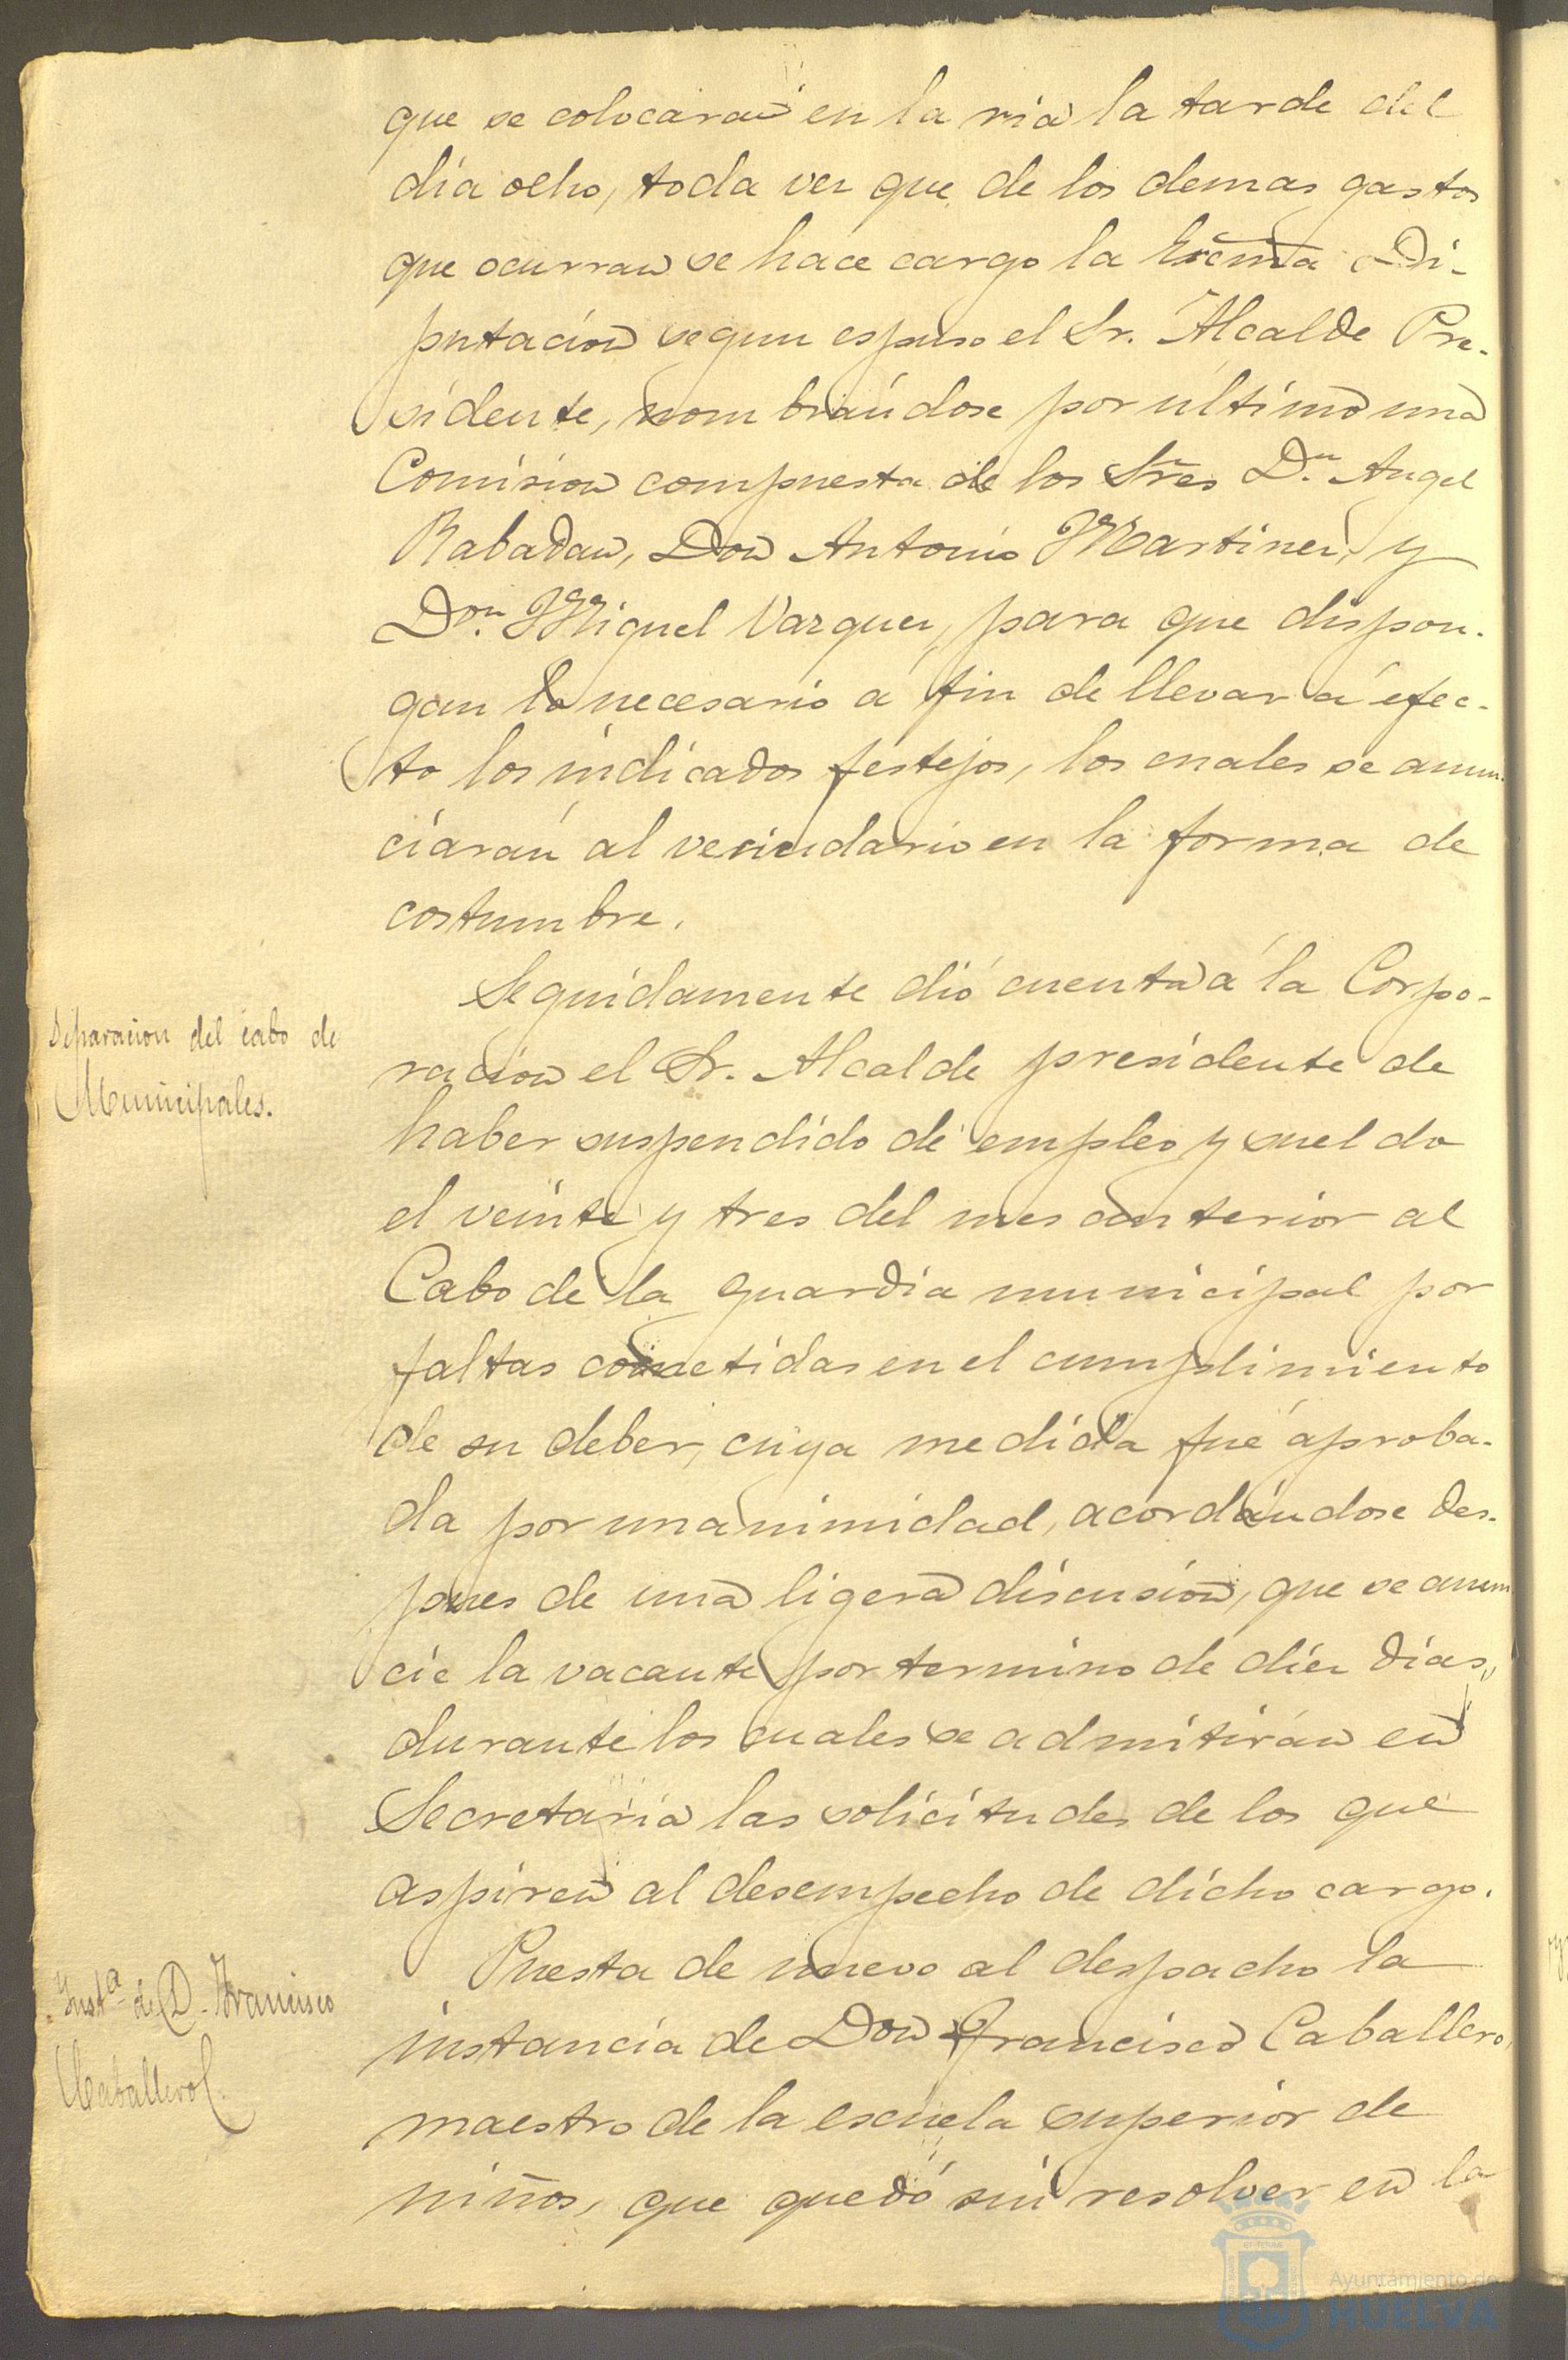 que se colocaran en la ria la tarde del
dia ocho, toda vez que de los demas gastos
que ocurran se hace cargo la Excma Di-
putacion segun espuso el Sr. Alcalde Pre-
sidente, nombrándose por ultimo una
Comision compuesta de los Sres Dn. Angel
Rabadan, Don Antonio Martinez, y
Don. Miguel Vazquez, para que dispon-
gan lo necesario á fin de llevar á efec-
to los indicados festejos, los cuales se anun-
ciarán al vecindario en la forma de
costumbre.
Separacion del cabo de
Municipales.
Seguidamente dió cuenta á la Corpo-
racion el Sr. Alcalde presidente de
haber suspendido de empleo y sueldo
el veinte y tres del mes anterior al
Cabo de la guardia municipal por
faltas cometidas en el cumplimiento
de su deber, cuya medida fué aproba-
da por unanimidad, acordándose des-
pues de una ligera discusion, que se anun
cie la vacante por termino de diez dias,
durante los cuales se admitirán en
Secretaria las solicitudes de los que
aspiren al desempeño de dicho cargo.
Insta. de D. Francisco
Caballero
Puesta de nuevo al despacho la
instancia de Don Francisco Caballero,
maestro de la escuela superior de
niños, que quedó sin resolver en la
Ayuntamiento de
HUELVA